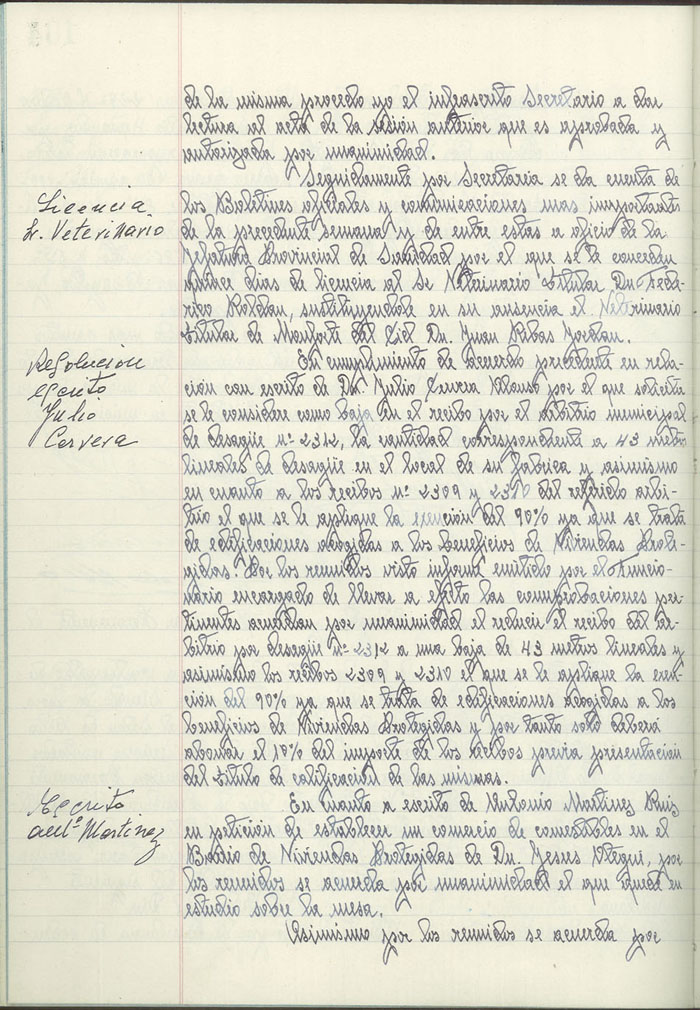 de la misma procedo yo el infrascrito Secretario a dar
lectura al acta de la sesión anterior que es aprobada y
autorizada por unanimidad.
Licencia
Sr. Veterinario
Seguidamente por Secretaria se da cuenta de
los Boletines oficiales y comunicaciones mas importantes
de la precedente semana y de entre estas a oficio de la
Jefatura Provincial de Sanidad por el que se le conceden
quince dias de licencia al Sr Veterinario titular Dn. Fede-
rico Roldan, sustituyendole en su ausencia el Vetrinario
titular de Monforte del Cid Dn. Juan Ribas Jordan.
Resolucion
escrito
Julio
Cervera
En cumplimiento de acuerdo precedente en rela-
ción con escrito de Dn. Julio Cervera Alonso por el que solicita
se le considere como baja en el recibo por el arbitrio municipal
de desagüe nº 2312, la cantidad correspondiente a 43 metros
lineales de desagüe en el local de su fabrica y asimismo
en cuanto a los recibos nº 2309 y 2310 del referido arbi-
trio el que se le aplique la exención del 90% ya que se trata
de edificaciones acogidas a los beneficios de Viviendas Prote-
gidas. Por los reunidos visto informe emitido por el Funcio-
nario encargado de llevar a efecto las comprobaciones per-
tinentes acuerdan por unanimidad el reducir el recibo del ar-
bitrio por desagüe nº 2312 a una baja de 43 metros lineales y
asimismo los recibos 2309 y 2310 el que se le aplique la exen-
ción del 90% ya que se trata de edificaciones acogidas a los
beneficios de Viviendas Protegidas y por tanto solo deberá
abonar el 10% del importe de los recibos previa presentación
del titulo de calificación de las mismas.
Escrito
antº Martinez
En cuanto a escrito de Antonio Martinez Ruiz
en petición de establecer un comercio de comestibles en el
Barrio de Viviendas Protegidas de Dn. Jesus por
los reunidos se acuerda por unanimidad el que quede en
estudio sobre la mesa.
Asimismo por los reunidos se acuerda por